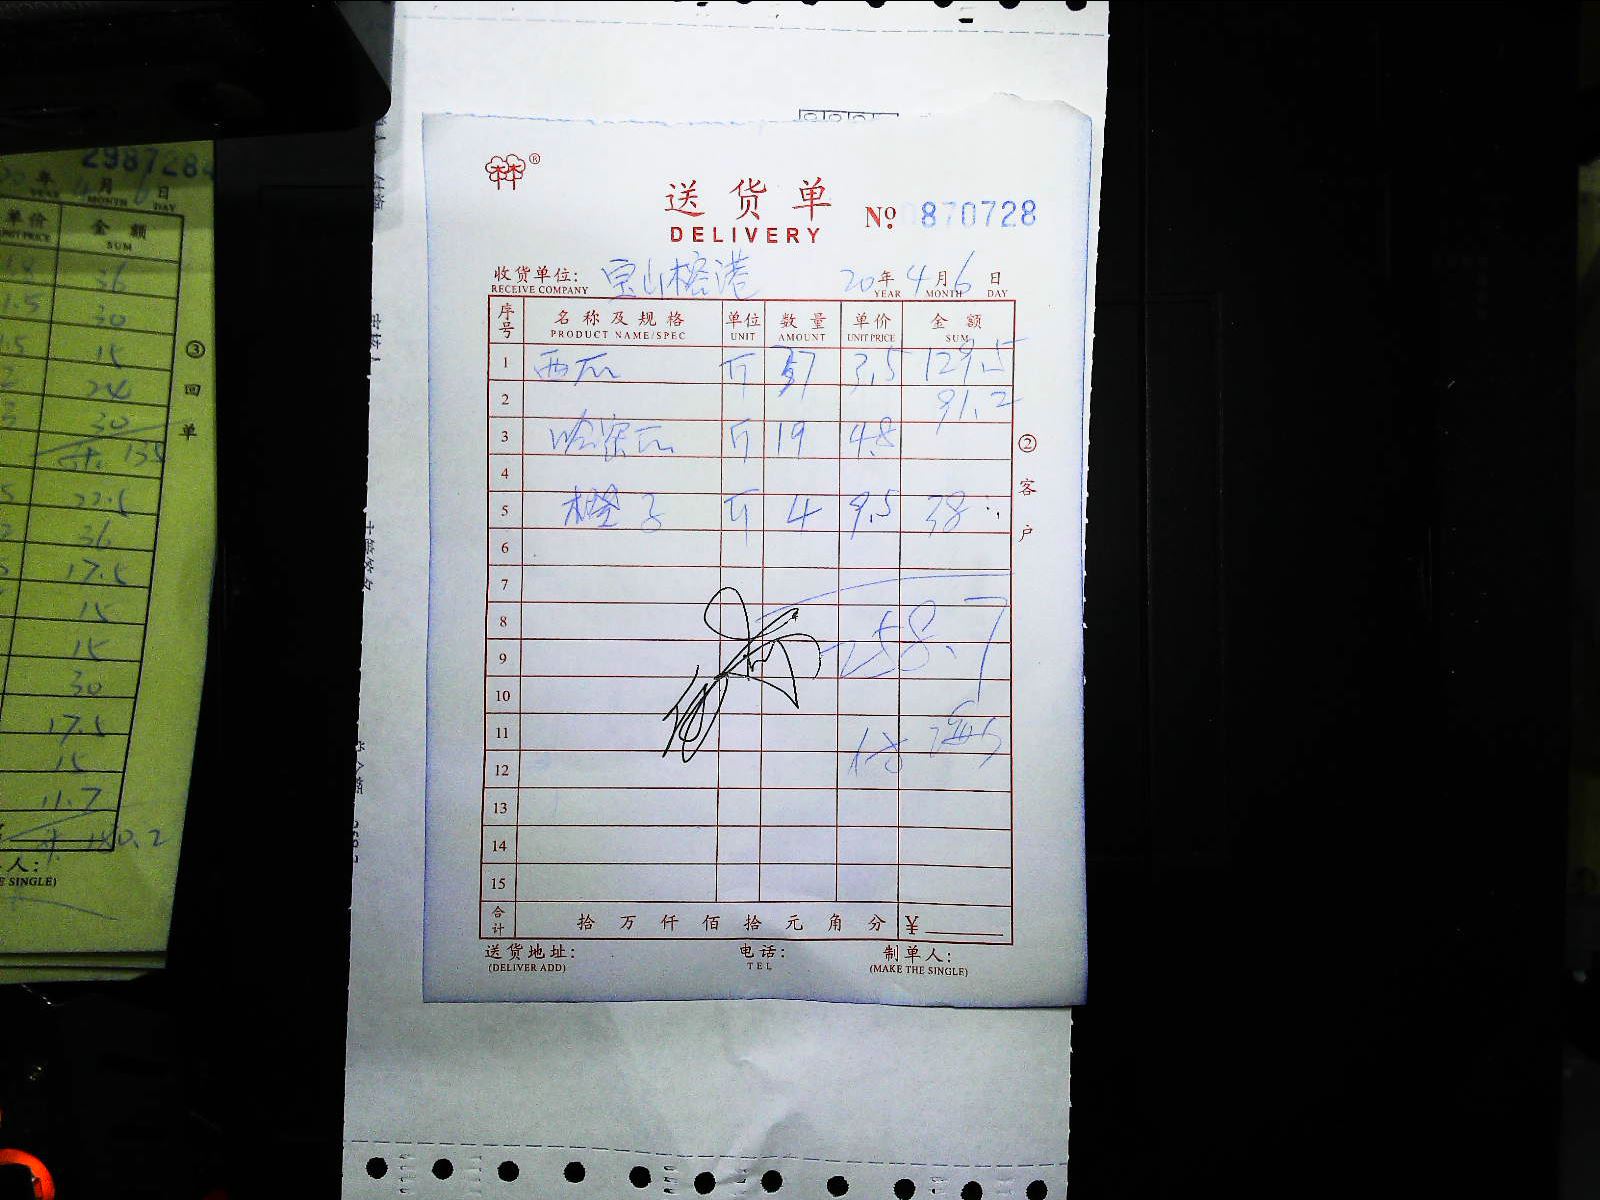 2987284
年 4月 6日
YEAR MONTH DAY
单价 金额
UNIT PRICE SUM
36
1.5 30
1.5 15
24
30
135
22.5
36
17.5
15
15
30
17.5
15
11.7
180.2
人:
E SINGLE)
③回单
®
送货单
DELIVERY
№ 0870728
收货单位: 宝山榕港 20年4月6日
RECEIVE COMPANY YEAR MONTH DAY
序号 名称及规格 单位 数量 单价 金额
PRODUCT NAME/SPEC UNIT AMOUNT UNIT PRICE SUM
1 西瓜 斤 37 3.5 129.5
2 91.2
3 哈蜜瓜 斤 19 4.8
4
5 橙子 斤 4 9.5 38
6
7
8
258.7
9
10
11
12
13
14
15
合计 拾万仟佰拾元角分 ¥
送货地址: 电话: 制单人:
(DELIVER ADD) TEL (MAKE THE SINGLE)
②客户